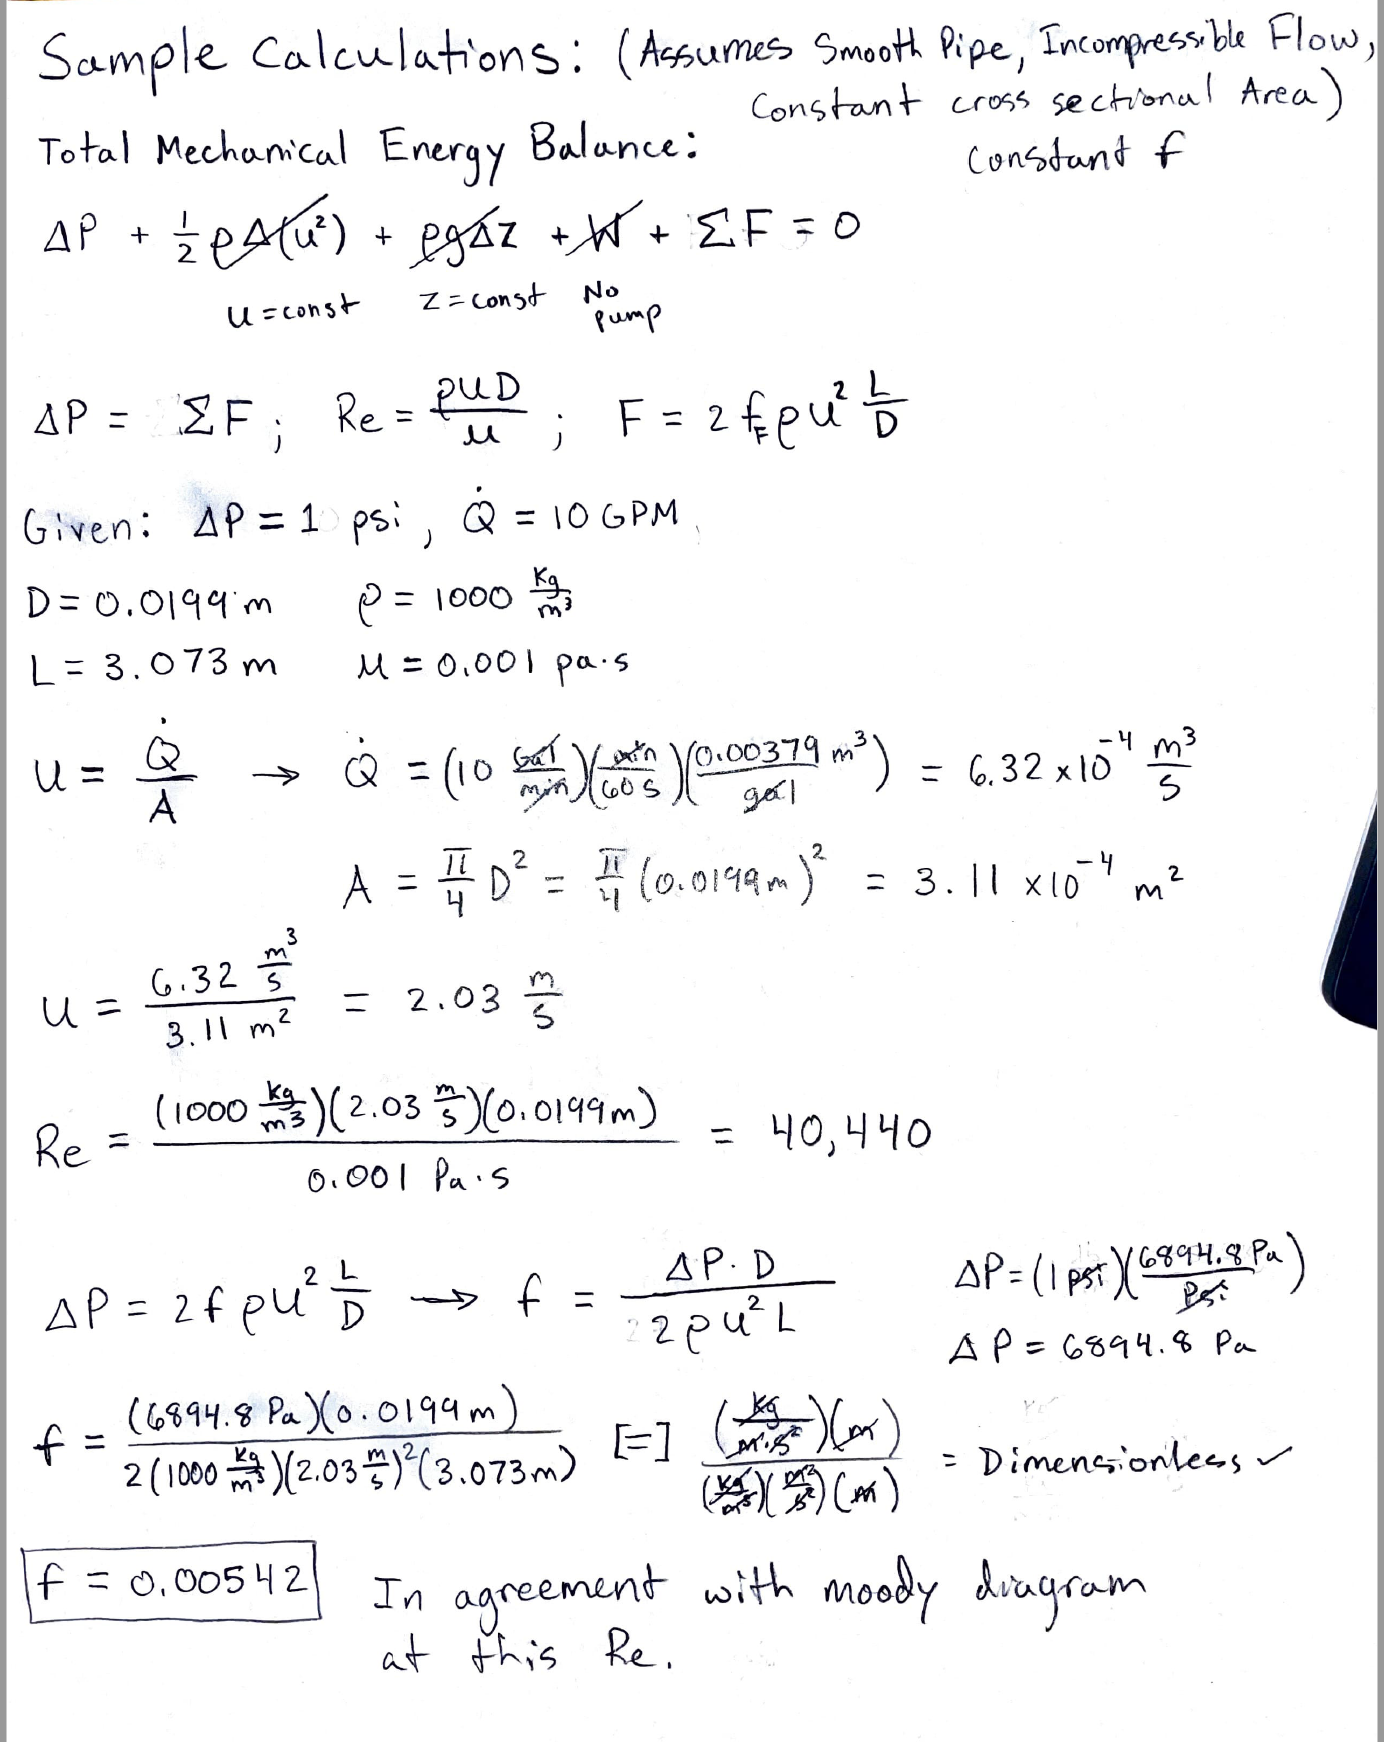 Sample Calculations: (Assumes Smooth Pipe, Incompressible Flow,
Constant cross sectional Area)
Total Mechanical Energy Balance:
Constant f
ΔP + 1/2 ρΔ(u²) + ρgΔz + W + ΣF = 0
u = const z = const No pump
ΔP = ΣF ; Re = ρuD/μ ; F = 2 f_F ρu² L/D
Given: ΔP = 1 psi, Q̇ = 10 GPM
D = 0.0199 m ρ = 1000 kg/m³
L = 3.073 m μ = 0.001 pa·s
u = Q̇/A → Q̇ = (10 Gal/min)(min/60 s)(0.00379 m³/gal) = 6.32 x10⁻⁴ m³/s
A = π/4 D² = π/4 (0.0199m)² = 3.11 x10⁻⁴ m²
u = 6.32 m³/s / 3.11 m² = 2.03 m/s
Re = (1000 kg/m³)(2.03 m/s)(0.0199m) / 0.001 Pa·s = 40,440
ΔP = 2fρu² L/D → f = ΔP·D / 2ρu²L ΔP = (1 psi)(6894.8 Pa/Psi)
ΔP = 6894.8 Pa
f = (6894.8 Pa)(0.0199 m) / 2(1000 kg/m³)(2.03 m/s)²(3.073m) [=] (kg/m·s²)(m) / (kg/m³)(m²/s²)(m) = Dimensionless ✓
f = 0.00542 In agreement with moody diagram
at this Re.